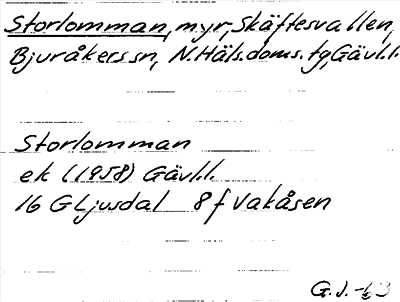 Storlomman, myr, Skäftesvallen,
Bjuråkers sn, N. Häls. doms. tg, Gävl.l.
Storlomman
ek (1958) Gävl.l.
16 G Ljusdal 8 f Vakåsen
G.J. -63